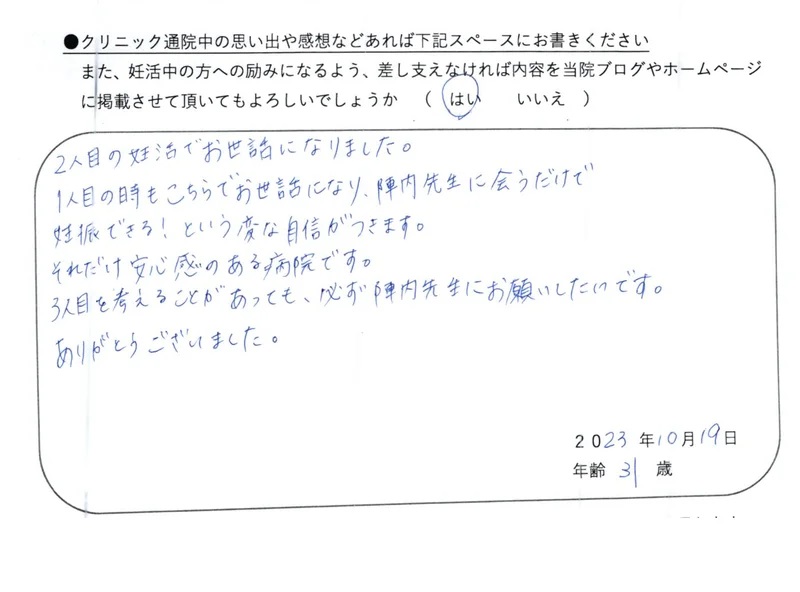 ●クリニック通院中の思い出や感想などあれば下記スペースにお書きください
また、妊活中の方への励みになるよう、差し支えなければ内容を当院ブログやホームページ
に掲載させて頂いてもよろしいでしょうか （ はい いいえ ）
2人目の妊活でお世話になりました。
1人目の時もこちらでお世話になり、陣内先生に会うだけで
妊娠できる！という変な自信がつきます。
それだけ安心感のある病院です。
3人目を考えることがあっても、必ず陣内先生にお願いしたいです。
ありがとうございました。
2023年10月19日
年齢 31 歳